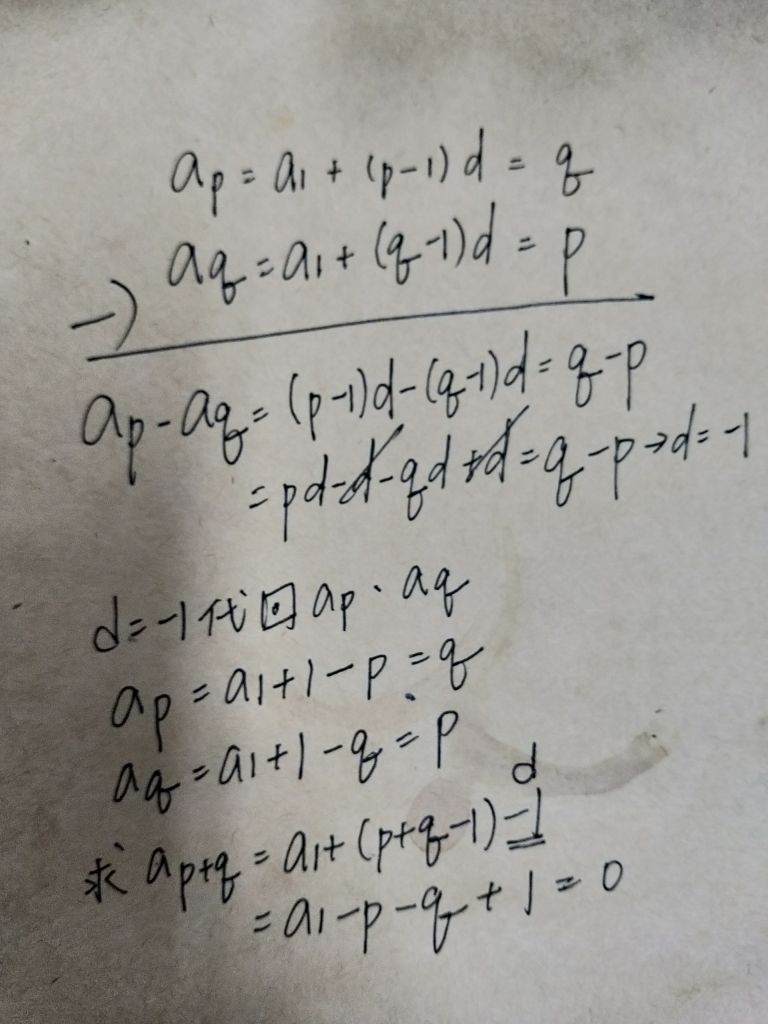 ap = a1 + (p-1)d = q
aq = a1 + (q-1)d = p
-)
ap - aq = (p-1)d - (q-1)d = q-p
= pd - d - qd + d = q - p → d = -1
d = -1 代回 ap、aq
ap = a1 + 1 - p = q
aq = a1 + 1 - q = p
d
求 ap+q = a1 + (p+q-1) -1
= a1 - p - q + 1 = 0